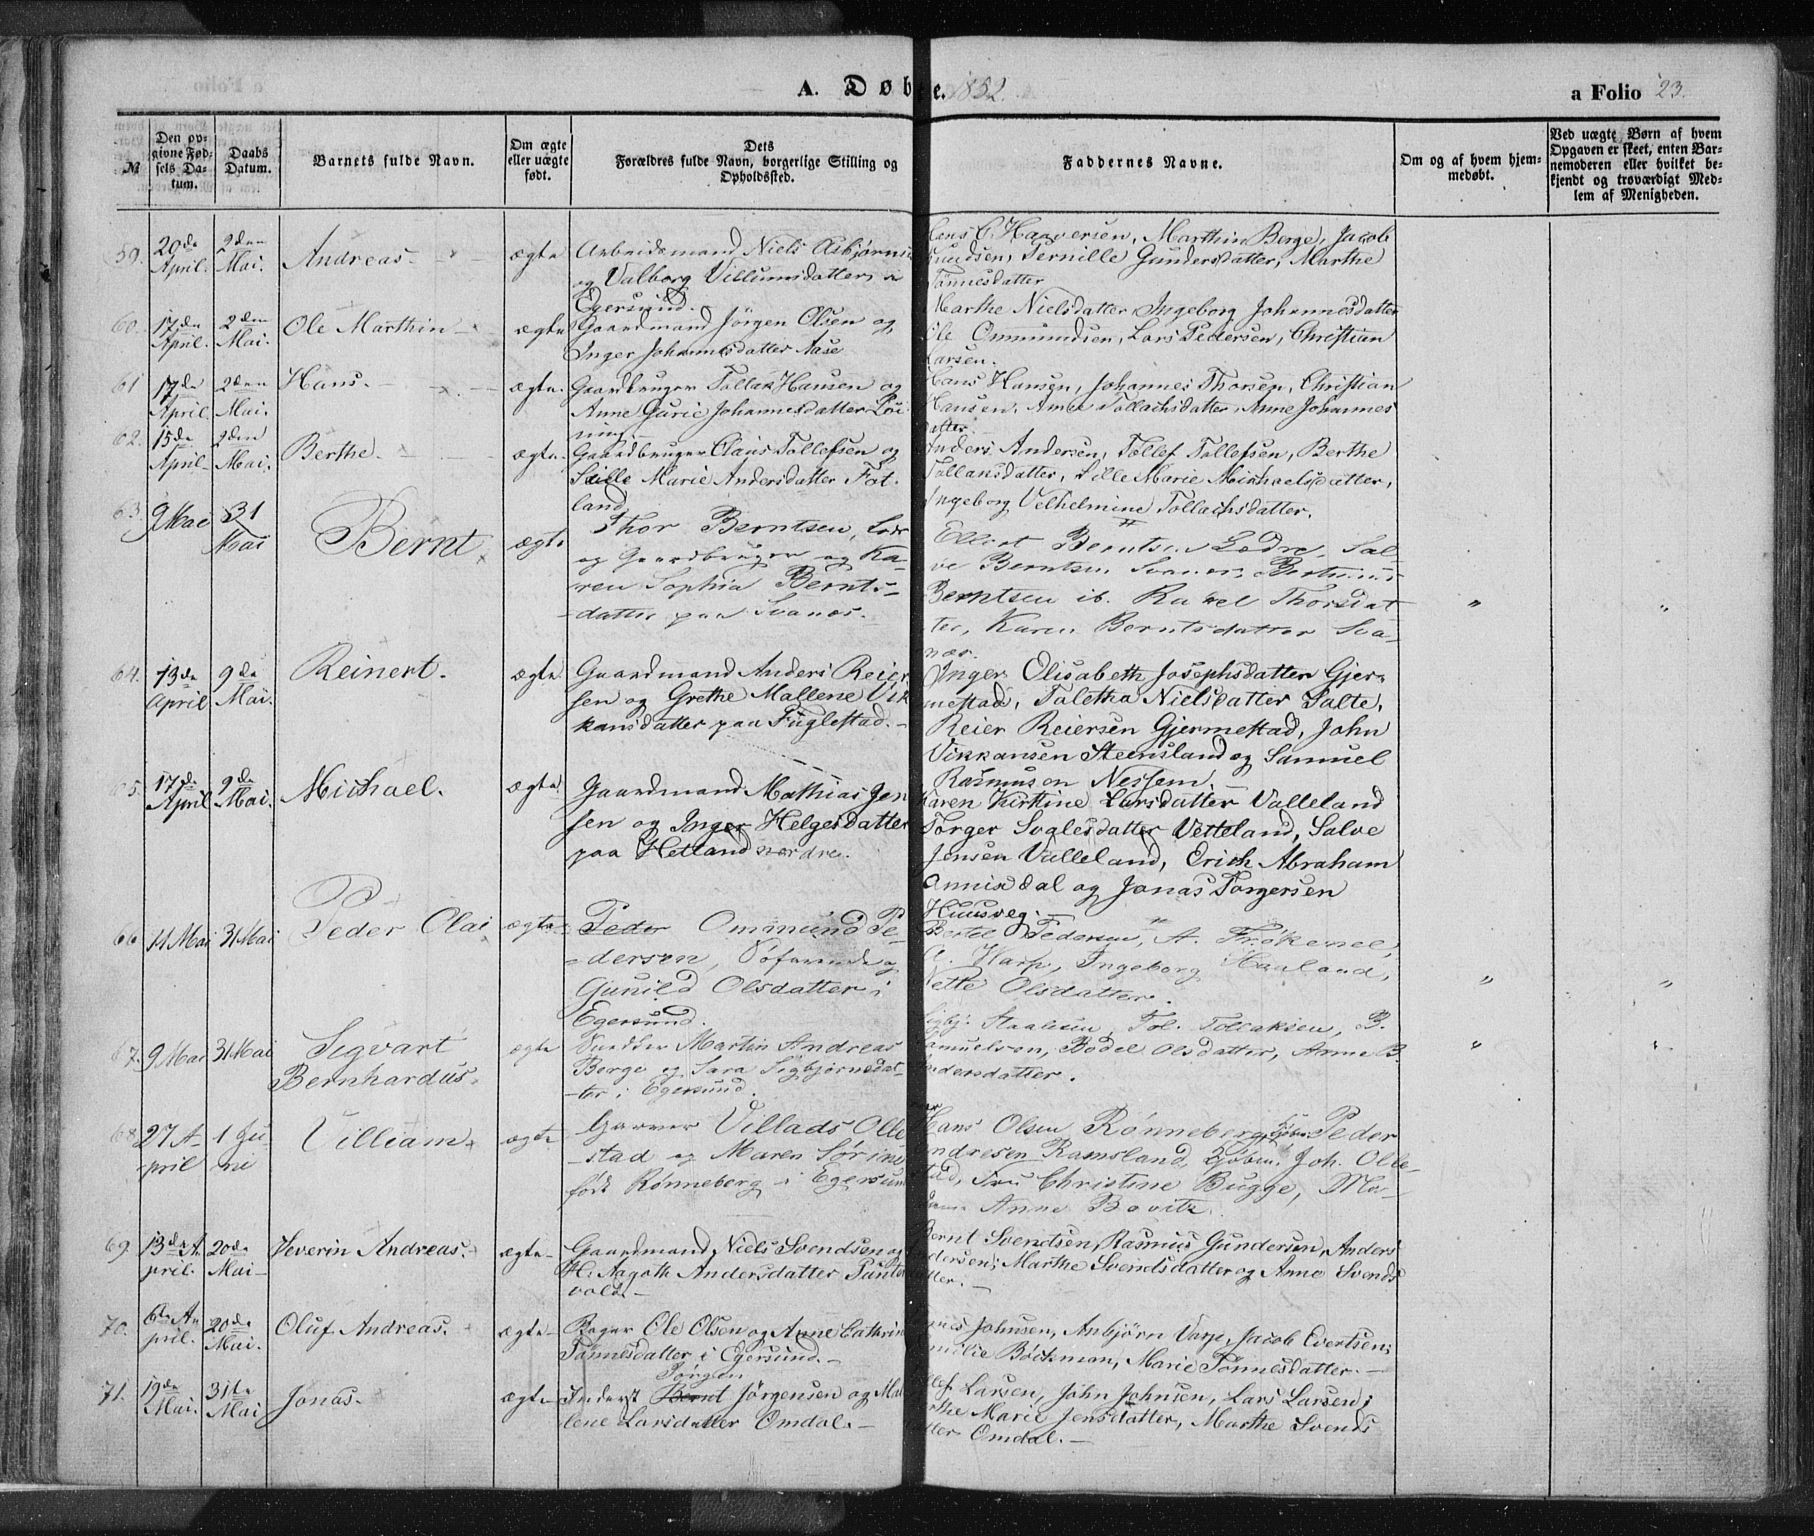 A. Døbte. 1852. a Folio 23.
№ | Den opgivne Fødsels Datum. | Daabs Datum. | Barnets fulde Navn. | Om ægte eller uægte født. | Dets Forældres fulde Navn, borgerlige Stilling og Opholdssted. | Faddernes Navne. | Om og af hvem hjemmedøbt. | Ved uægte Børn af hvem Opgaven er skeet, enten Barnemoderen eller hvilket bekjendt og troværdigt Medlem af Menigheden.
59. 20de April. 2den Mai. Andreas. ægte
Arbeidsmand Niels Asbjørns
og Valborg Villumsdatter i
Egersund.
Haaversen, Marthin Berge, Jacob
Knudsen, Pernille Gundersdatter, Marthe
Tønnesdatter
60. 17de April. 2den Mai. Ole Marthin ægte
Gaardmand Jörgen Olsen og
Inger Johannesdatter Aase
Marthe Nielsdatter Ingeborg Johannesdatter
Ole Ommundsen, Lars Pedersen, Christian
Larsen.
61 17de April. 2den Mai. Hans. ægte.
Gaardbruger Tollak Hansen og
Anne Gurie Johannesdatter Löi
ning.
Hans Hansen, Johannes Thorsen, Christian
Hansen, Anne Tollachsdatter, Anne Johannes
datter.
62. 15de April 2den Mai. Berthe. ægte.
Gaardbruger Claus Tollefsen og
Sille Marie Andersdatter Fot-
land
Anders Andersen, Tollef Tollefsen, Berthe
Tollaksdatter, Sille Marie Michaelsdatter,
Ingeborg Velhelmine Tollachsdatter.
63. 9 Mai 31 Mai Bernt ægte
Thor Berntsen, Lods
og Gaardbruger og Ka-
ren Sophia Bernts-
-datter paa Svanæs.
Ellert Berntsen Lodre, Sal-
ve Berntsen Svanæs,
Berntsen ib. Rakel Thorsdat
ter, Karen Berntsdatter Sva-
næs.
64. 13de April 9de Mai. Reinert. ægte
Gaardmand Anders Reier
sen og Grethe Mallene Vik
kansdatter paa Fuglestad.
Inger Olisabeth Josephsdatter Gjer-
mestad, Taletha Nielsdatter Salte,
Reier Reiersen Gjermestad, John
Vikkansen Steensland og Samuel
Rasmusen Nessem.
65. 17de April 9de Mai. Michael. ægte
Gaardmand Mathias Jen
sen og Inger Helgesdatter
paa Hetland nordre.
Karen Kirstine Larsdatter Valleland
Torger Svalesdatter Vetteland, Salve
Jensen Valleland, Erich Abraham
Omdal og Jonas Torgersen
Huusveg.
66. 11 Mai 31 Mai Peder Olai ægte
Peder Ommund Pe-
-dersen, Søfarende og
Gunild Olsdatter i
Egersund.
Bertel Pedersen, A. Frøkenel,
Warp, Ingeborg Haaland,
Nette Olsdatter.
67. 9 Mai 31 Mai Sigvart Bernhardus. ægte
Snedker Martin Andreas
Berge og Sara Sigbjørnsdat-
-ter i Egersund.
Sigbj. Staalesen, Tol. Tollaksen, B.
Samuelsen, Bodel Olsdatter, Anne B.
Andersdatter.
68. 27 April 1 Juni Villiam ægte
Garver Villads Olle-
-stad og Maren Sørine
født Rønneberg i Egersund
Hans Olsen Rønneberg, Peder
Andresen Ramsland, Joh. Olle-
stad, Fru Christine Bugge, Ma-
Anne Bovitz.
69. 13de April. 20de Mai Severin Andreas. ægte
Gaardmand Niels Svendsen og
H. Aagoth Andersdatter Puntervold.
Bernt Svendsen, Rasmus Gundersen, Anders
Andersen, Marthe Svendsdatter og Anne Svends
datter.
70. 6de April. 20de Mai. Oluf Andreas. ægte
Bager Ole Olsen og Anne Cathrin
Tønnesdatter i Egersund.
Johnsen, Anbjörn Varp, Jacob Evertsen,
Emilie Böckman, Marie Tønnesdatter.
71. 19de Mai. 31te Mai Jonas. ægte
Jörgen
Inderst Bernt Jörgensen og Mal
lene Larsdatter Omdal.
Larsen, John Johnsen, Lars Larsen,
Marie Jensdatter, Marthe Svends
datter Omdal.